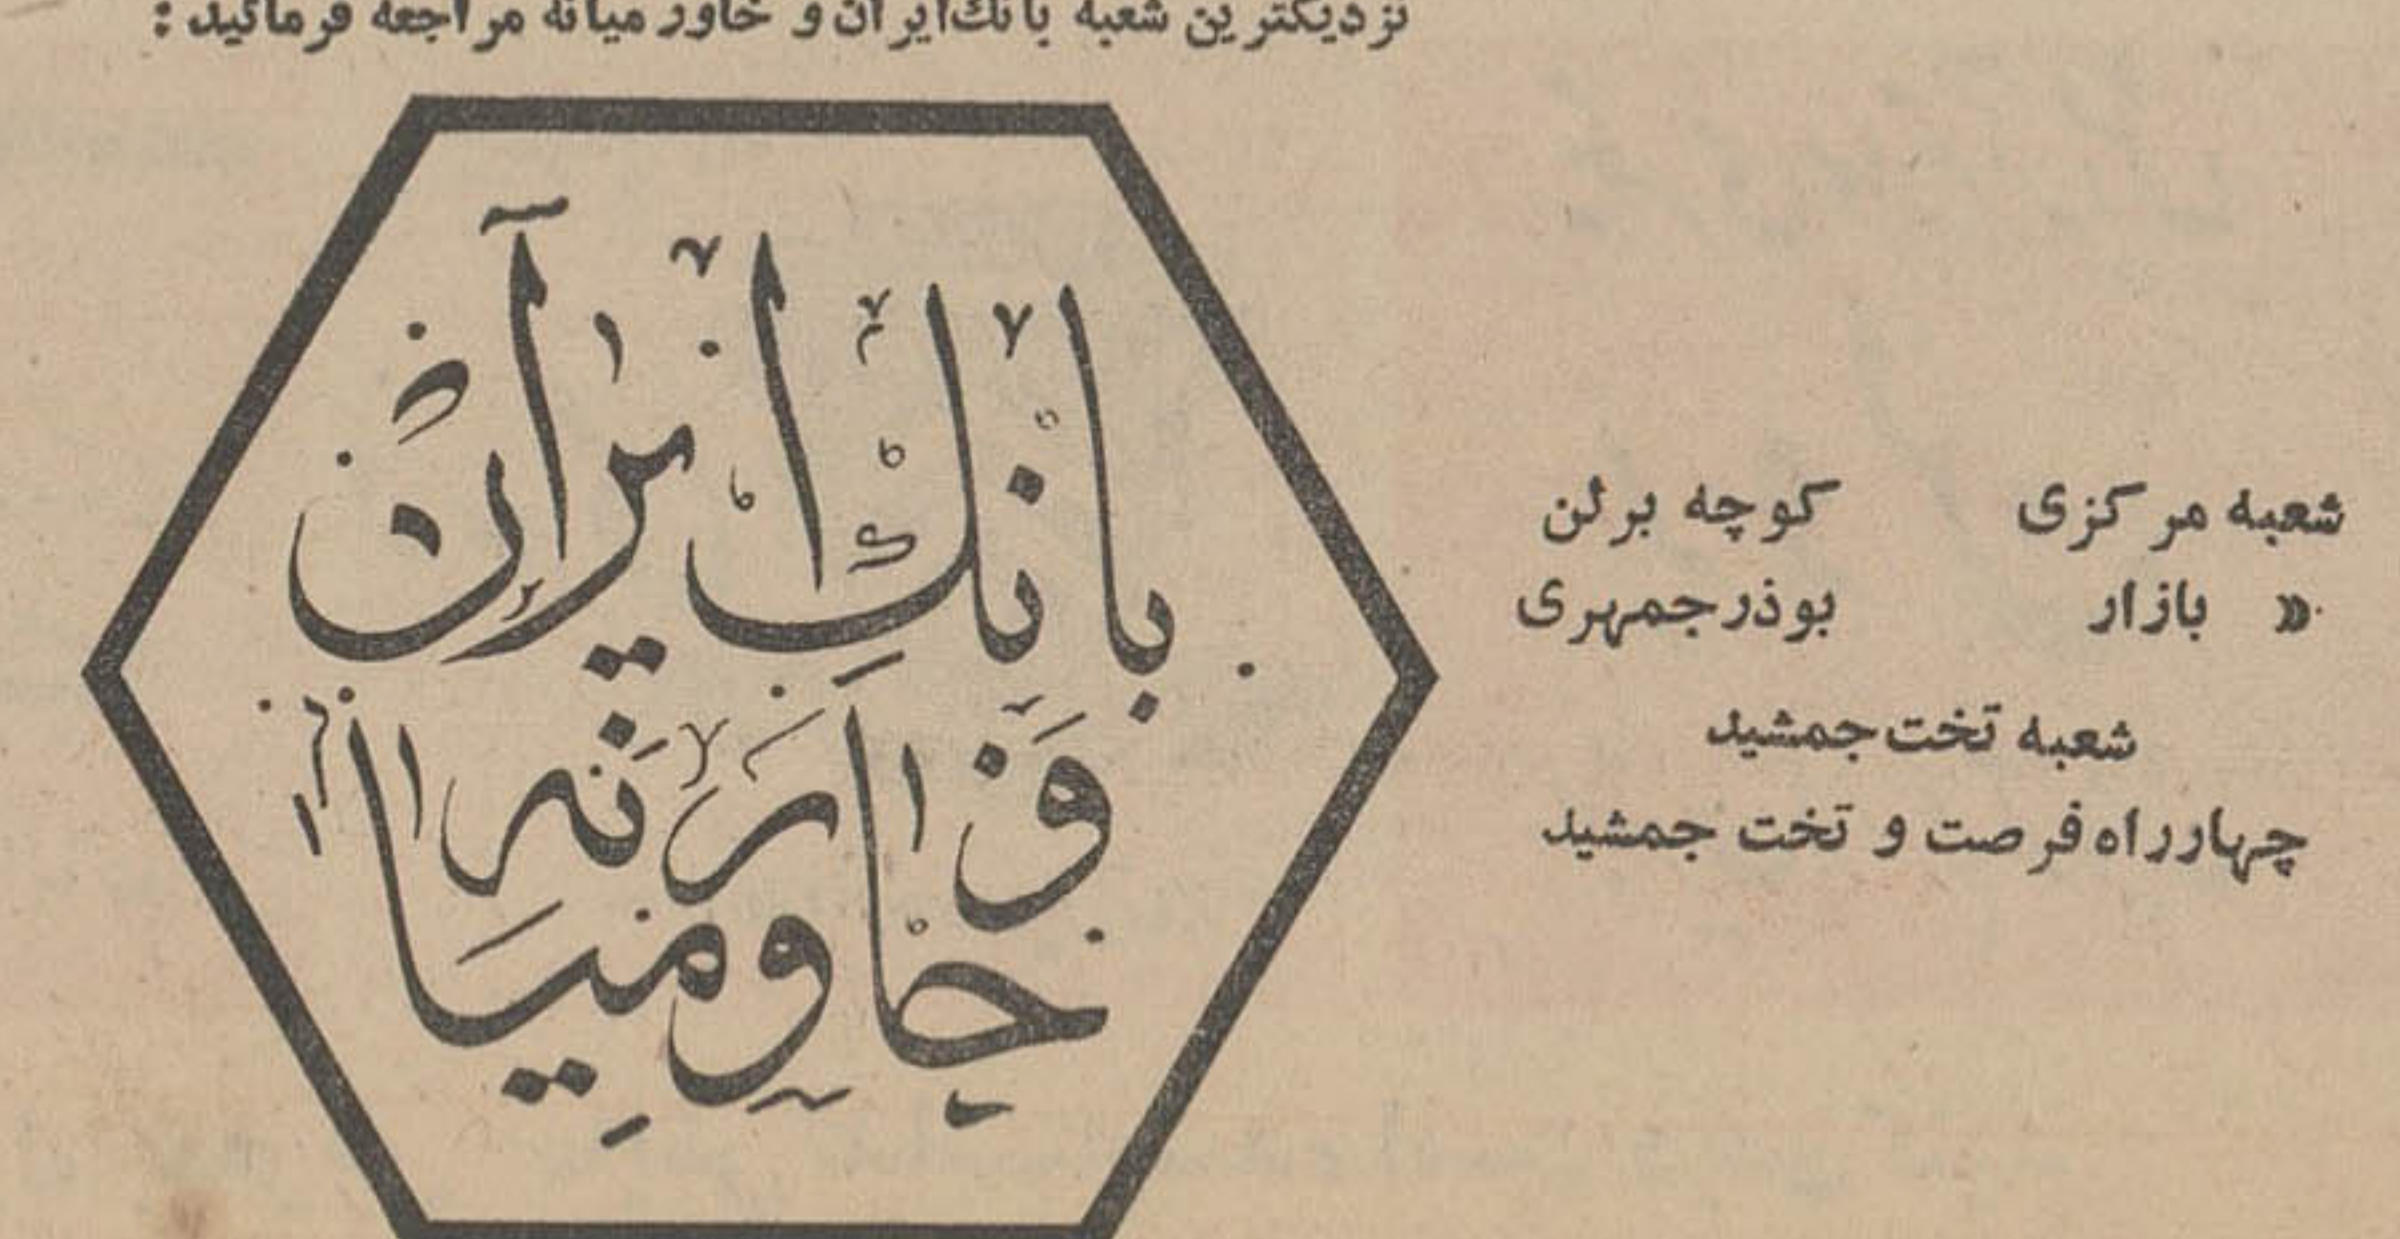 نزدیکترین شعبه بانک ایران و خاور میانه مراجعه فرمائید :
بانک ایران
و خاورمیانه
شعبه مرکزی کوچه برلن
« بازار بوذرجمهری
شعبه تخت جمشید
چهارراه فرصت و تخت جمشید